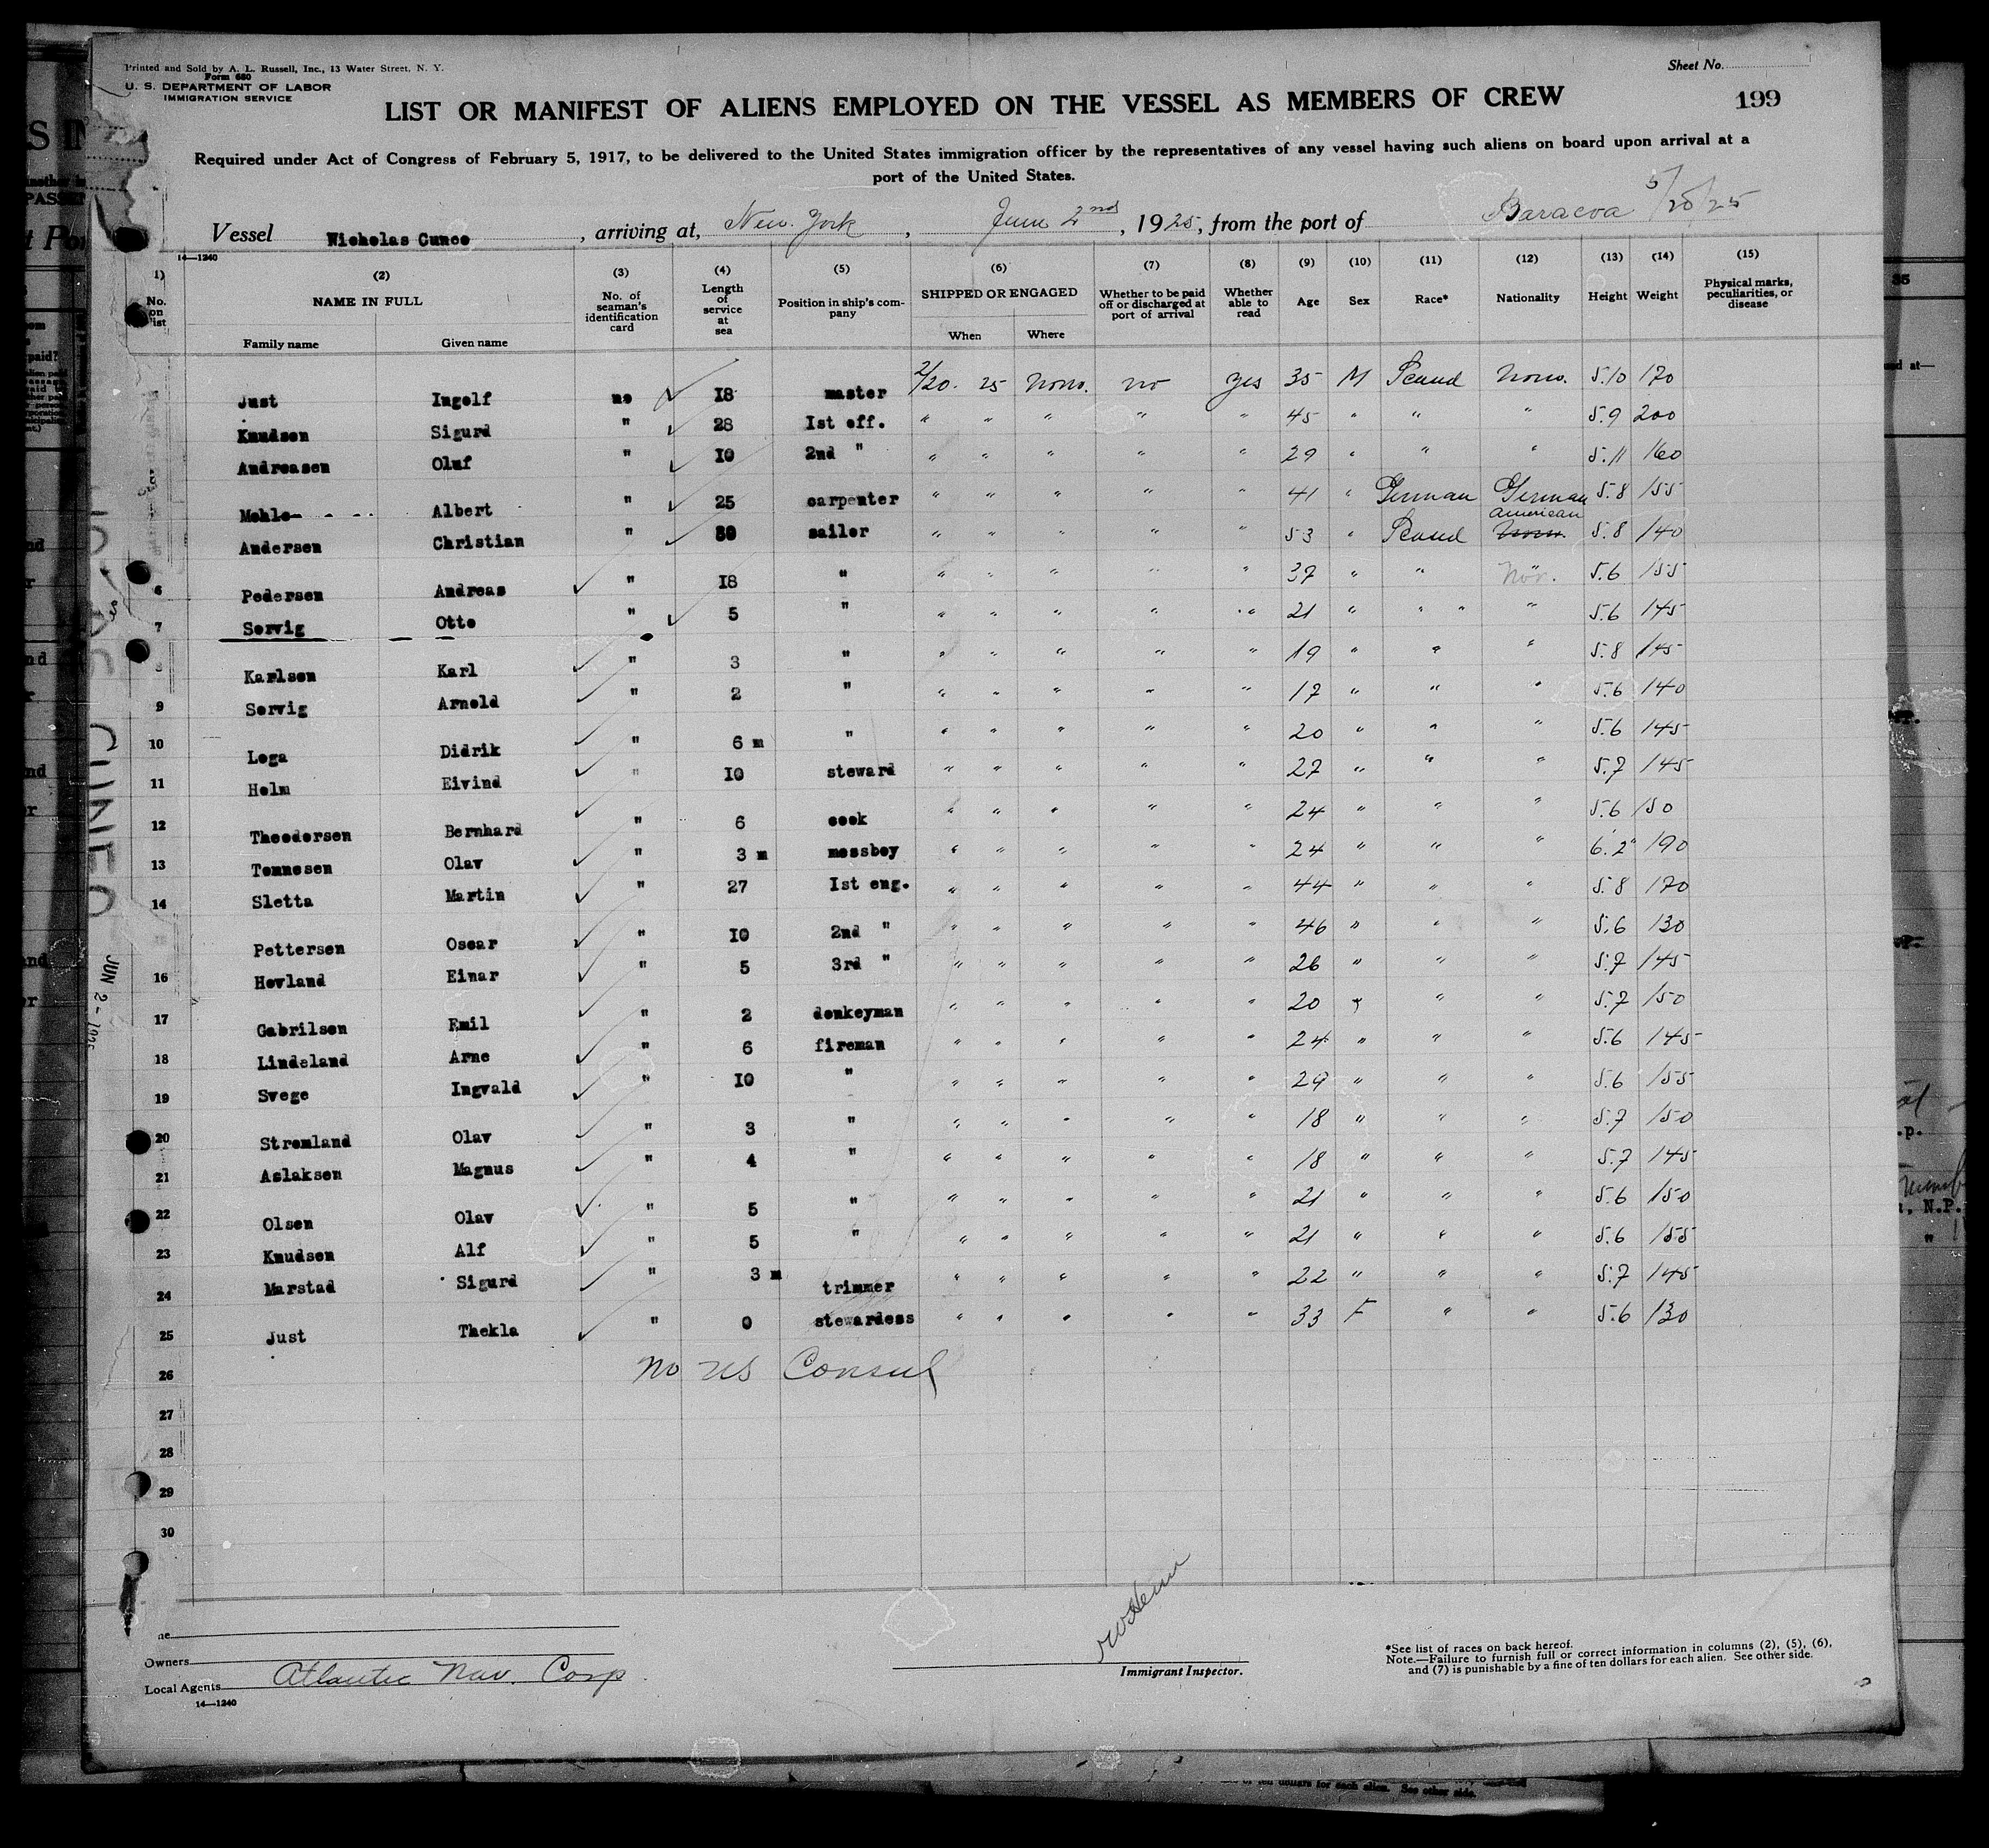 Printed and Sold by A. L. Russell, Inc., 13 Water Street, N. Y.
Form 680
U. S. DEPARTMENT OF LABOR
IMMIGRATION SERVICE
Sheet No.
199
LIST OR MANIFEST OF ALIENS EMPLOYED ON THE VESSEL AS MEMBERS OF CREW
Required under Act of Congress of February 5, 1917, to be delivered to the United States immigration officer by the representatives of any vessel having such aliens on board upon arrival at a
port of the United States.
Vessel Nicholas Cuneo, arriving at, New York, June 2nd, 1925, from the port of Baracoa 5/20/25
14—1240
1) No. on list (2) NAME IN FULL Family name Given name (3) No. of seaman's identification card (4) Length of service at sea (5) Position in ship's company (6) SHIPPED OR ENGAGED When Where (7) Whether to be paid off or discharged at port of arrival (8) Whether able to read (9) Age (10) Sex (11) Race* (12) Nationality (13) Height (14) Weight (15) Physical marks, peculiarities, or disease
Just Ingolf no 18 master 2/20. 25 Norw. no yes 35 M Scand Norw. 5.10 170
Knudsen Sigurd " 28 Ist off. " " " " " 45 " " " 5.9 200
Andreasen Oluf " 10 2nd " " " " " " 29 " " " 5.11 160
Mehle Albert " 25 carpenter " " " " " 41 " German German 5.8 155
Andersen Christian " 30 sailor " " " " " 53 " Scand American Norw. 5.8 140
6 Pedersen Andreas " 18 " " " " " " 37 " " Nor. 5.6 155
7 Sorvig Otto " 5 " " " " " " 21 " " " " 5.6 145
8 Karlsen Karl " 3 " " " " " " 19 " " " 5.8 145
9 Sorvig Arnold " 2 " " " " " " 17 " " " 5.6 140
10 Lega Didrik " 6 m " " " " " " 20 " " " 5.6 145
11 Holm Eivind " 10 steward " " " " " 27 " " " 5.7 145
12 Theodorsen Bernhard " 6 cook " " " " " 24 " " " 5.6 150
13 Tonnesen Olav " 3 m messboy " " " " " 24 " " " 6.2" 190
14 Sletta Martin " 27 Ist eng. " " " " " 44 " " " 5.8 170
Pettersen Oscar " 10 2nd " " " " " " 46 " " " 5.6 130
16 Hovland Einar " 5 3rd " " " " " " 26 " " " 5.7 145
17 Gabrilsen Emil " 2 donkeyman " " " " " 20 " " " 5.7 150
18 Lindeland Arne " 6 fireman " " " " " 24 " " " 5.6 145
19 Svege Ingvald " 10 " " " " " " 29 " " " 5.6 155
20 Stromland Olav " 3 " " " " " " 18 " " " 5.7 150
21 Aslaksen Magnus " 4 " " " " " " 18 " " " 5.7 145
22 Olsen Olav " 5 " " " " " " 21 " " " 5.6 150
23 Knudsen Alf " 5 " " " " " " 21 " " " 5.6 155
24 Marstad Sigurd " 3 m trimmer " " " " " 22 " " " 5.7 145
25 Just Thekla " 0 stewardess " " " " " 33 F " " 5.6 130
26 No US Consul
27
28
29
30
CUNEO
JUN 2 - 1925
Owners
Local Agents Atlantic Nav. Corp
14—1240
Immigrant Inspector.
*See list of races on back hereof.
Note.—Failure to furnish full or correct information in columns (2), (5), (6),
and (7) is punishable by a fine of ten dollars for each alien. See other side.